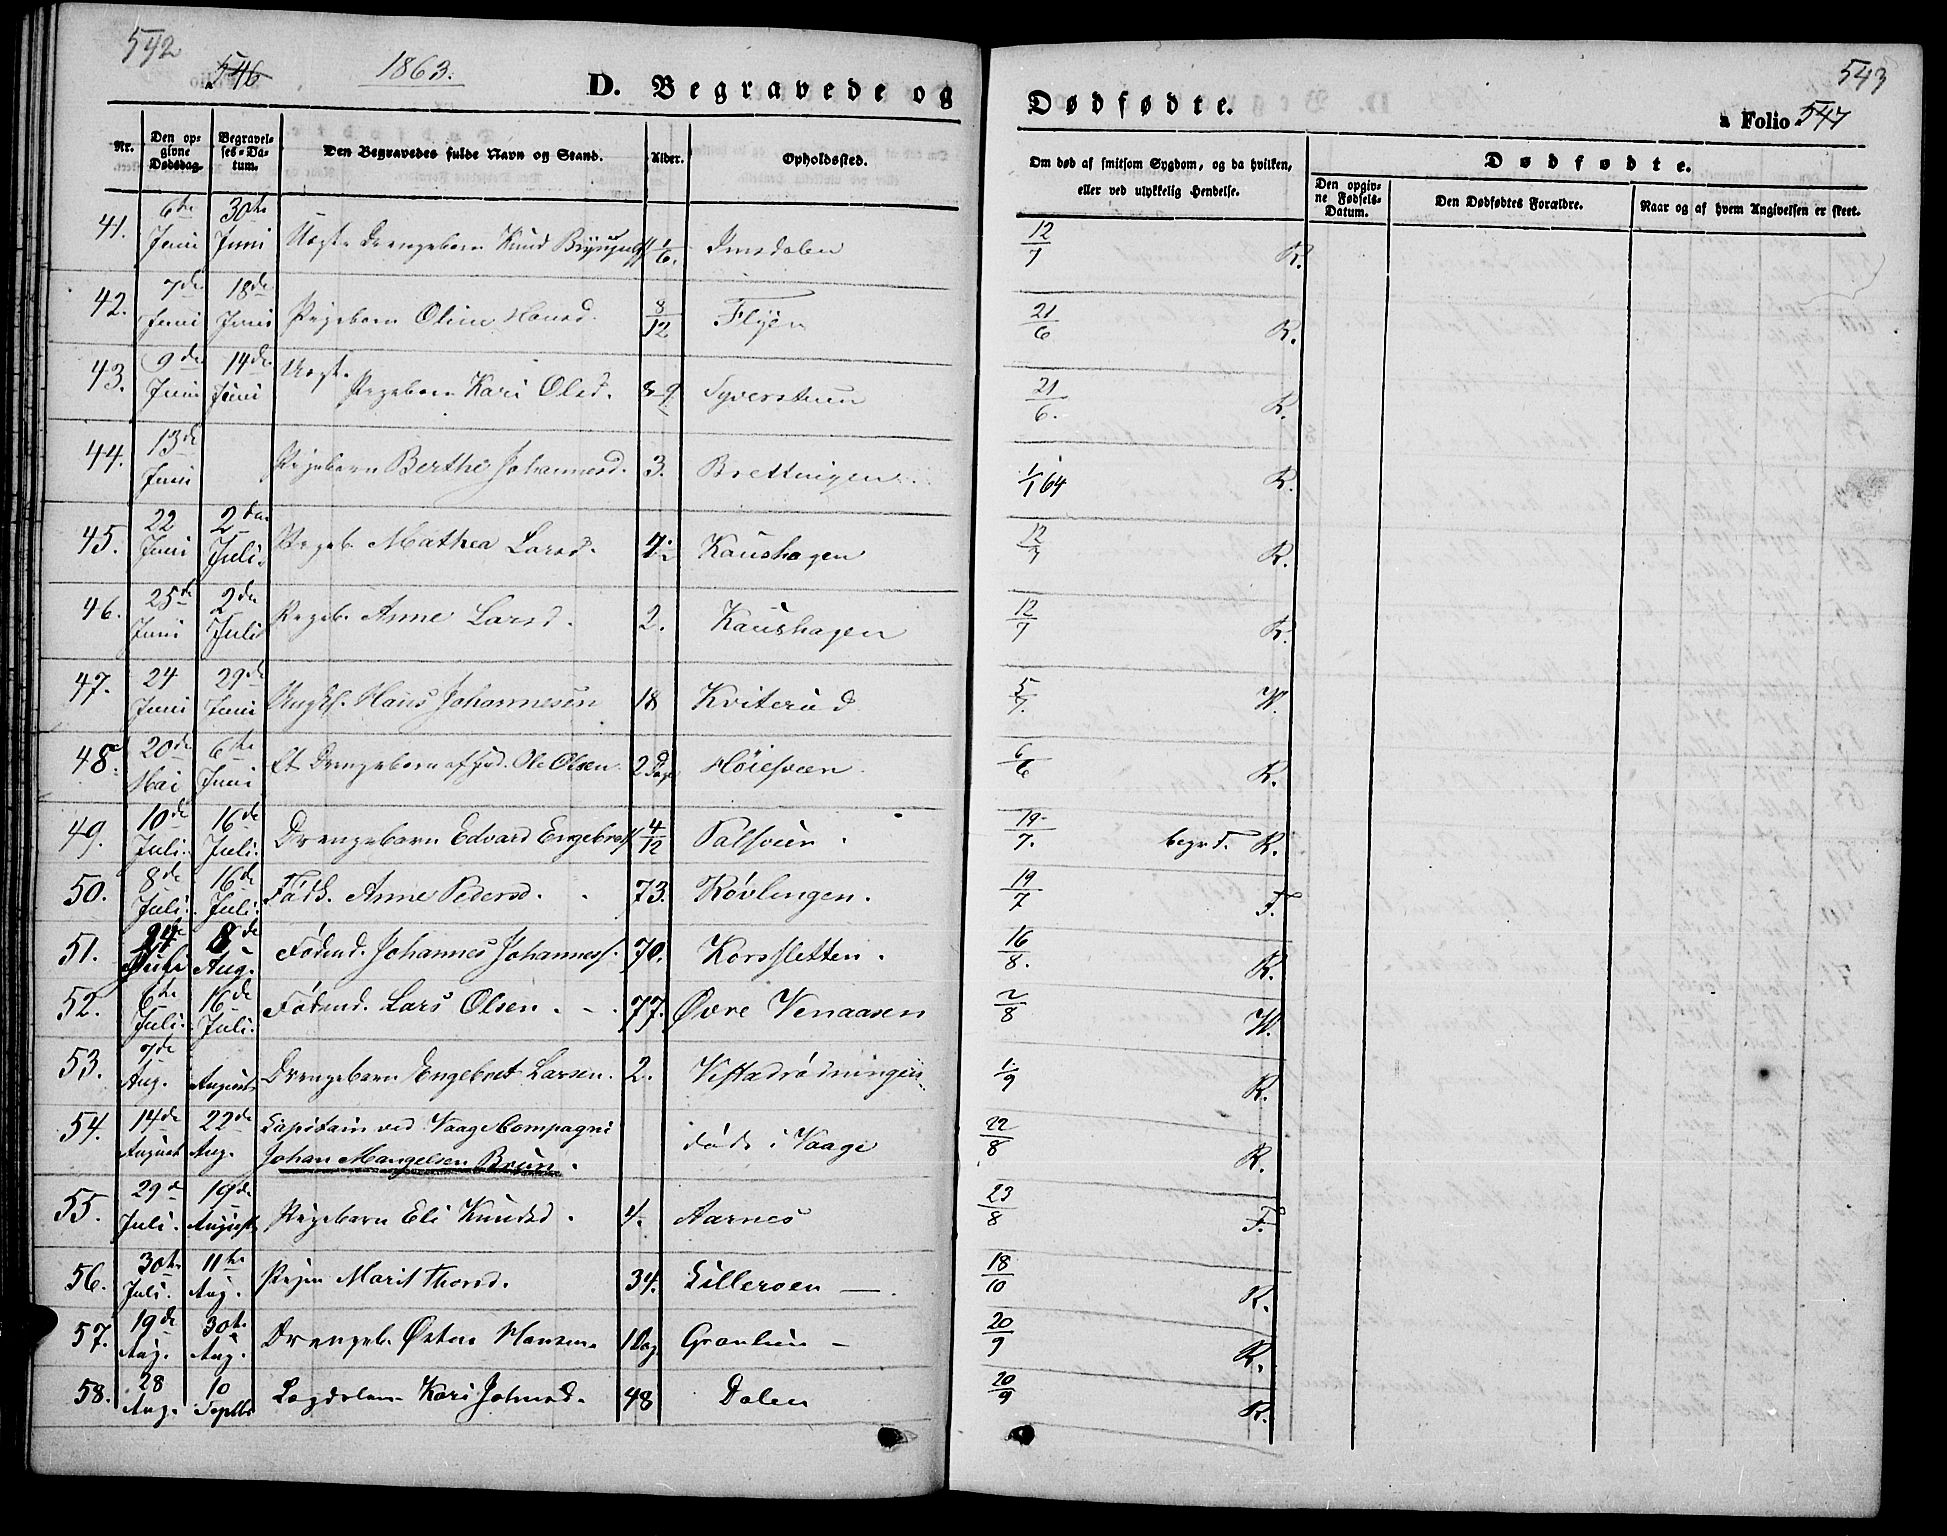 542
546
1863.
D. Begravede og
Nr.
Den opgivne Dødsdag
Begravelses-Datum.
Den Begravedes fulde Navn og Stand.
Alder.
Opholdssted.
41. 6te Juni 30te Juni Drengebarn Knud Imsdalen
42. 7de Juni 18de Juni Pigebarn Oline Hansd. 8/12 Flyen
43. 9de Juni 14de Juni Uægt. Pigebarn Kari Olsd. Syverstuen
44. 13de Juni Pigebarn Berthe Johannesd. 3. Brettingen.
45. 22 Juni 2den Juli. Pigeb. Mathea Larsd. Kaushagen
46. 25de Juni 2den Juli Pigeb. Anne Larsd. 2. Kaushagen
47. 24 Juni 29de Juni Ungk. Hans Johannesen 18 Kviterud
48. 20de Mai 6te Juni Et Drengebarn af Ole Olsen 2 Dage
49. 10de Juli. 16de Juli. Drengebarn Edvard Engebrets. 4/12
50. 8de Juli. 16de Juli. Anne Pedersd. 73. Røvlingen.
51. 24de Juli 8de Aug. Johannes Johanness. 70. Korssletten.
52. 6te Juli. 16de Juli. Lars Olsen. 77. Øvre Venaasen
53. 7de Aug. August Drengebarn Engebret Larsen. 2.
54. 14de August 22de Aug. Capitain ved Vaage Compagni
Johan Mangelsen Brun. død i Vaage
55. 29de Juli. 19de August Pigebarn Eli Knudsd. 4. Aarnes
56. 30te Juli. 11te Aug. Pigen Marit Thorsd. 34. Lilleroen
57. 19de Aug. 30te Aug. Drengeb. Østen Hansen. 1 Dag
58. 28 Aug. 10 Septbr Lægdslem Kari Johnsd. 48 Dalen
Dødfødte.
543
a Folio 547
Om død af smitsom Sygdom, og da hvilken,
eller ved ulykkelig Hendelse.
Dødfødte.
Den opgivne Fødsels-Datum.
Den Dødfødtes Forældre.
Naar og af hvem Angivelsen er skeet.
12/7 R.
21/6 R.
21/6. R.
1/1 64 R.
12/7 R.
12/7 R.
5/7. W.
6/6 R.
19/7. begr. F. R.
19/7 F.
16/8. R.
2/8 W.
1/9 R.
22/8 R.
23/8 F.
18/10 R.
20/9 R.
20/9 R.